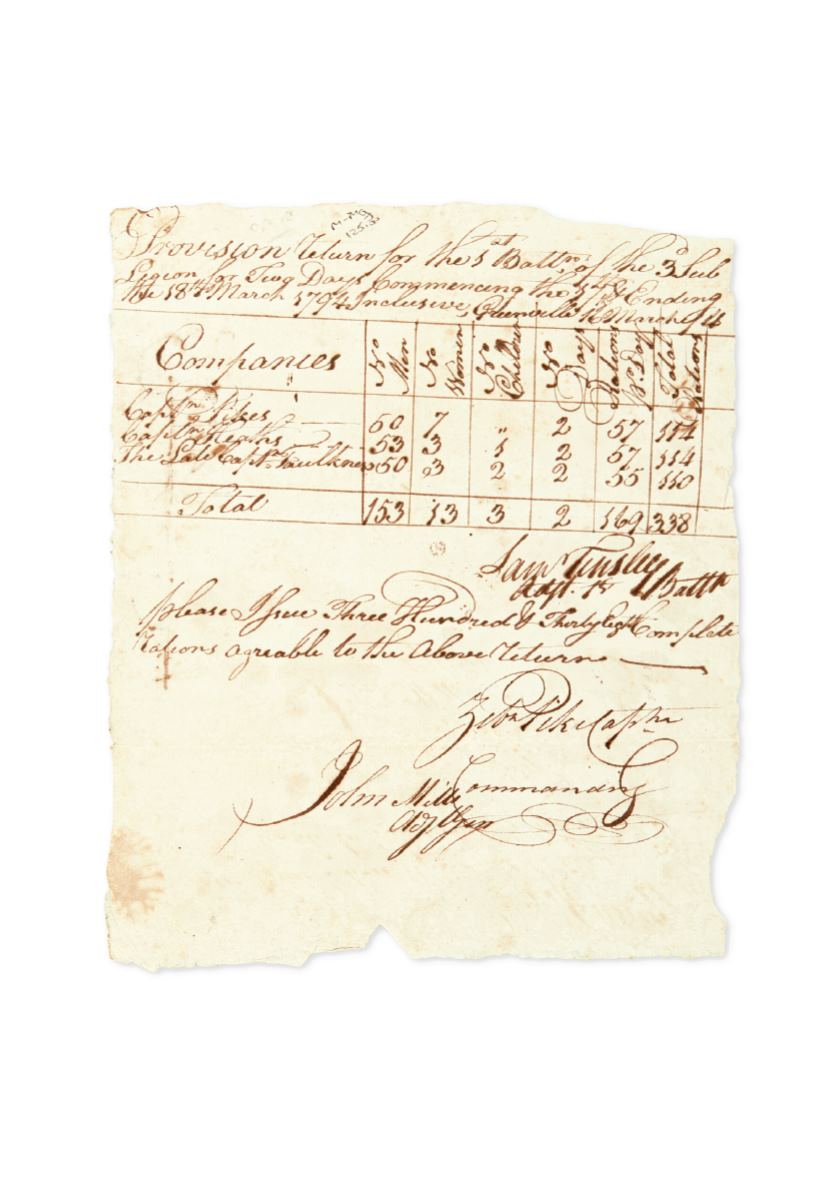 M-MG
125.3
Provision Return for the 1st Battn. of the 3d Sub
Legion for Two Days Commencing the 17th & Ending
the 18th March 1794 Inclusive, Greenville 16 March 94
Companies No Men No Women No Children No Days Rations Pr Day Total Rations
Captn. Pikes 50 7 " 2 57 114
Captn. Heaths 53 3 1 2 57 114
The Late Captn. Faulkners 50 3 2 2 55 110
Total 153 13 3 2 169 338
Sam Tinsley
Adjt. 1st Battn
please Issue Three Hundred & Thirty Eight Complete
Rations agreable to the Above Return
Zebn Pike Captn
Commanding
John Mills
Adj Gen